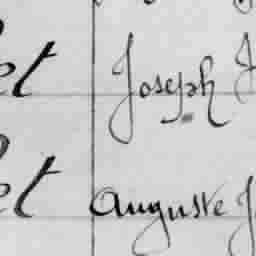 et Joseph J
et Auguste J